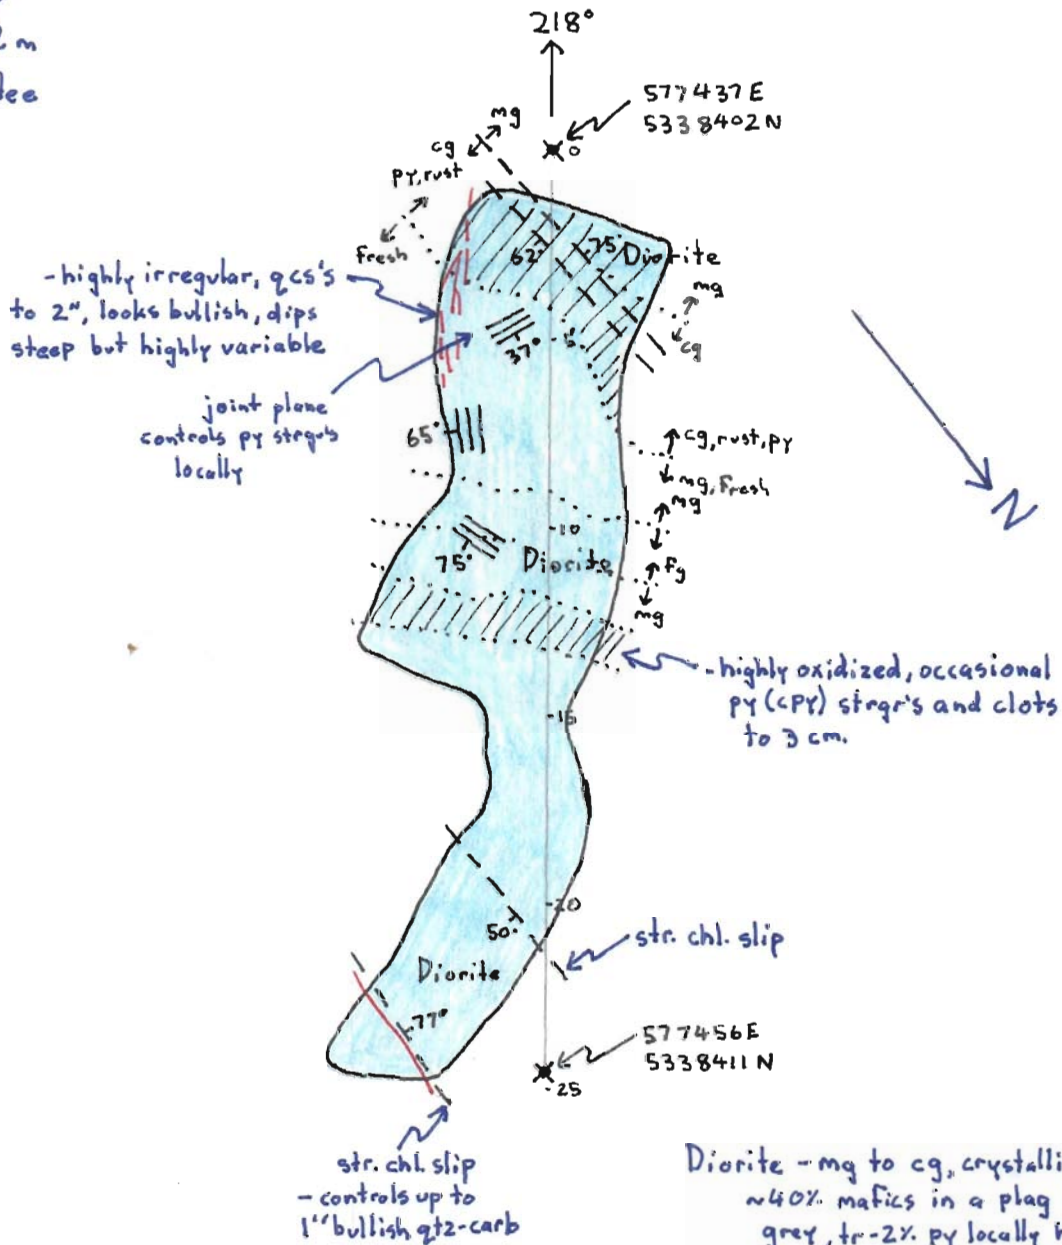 2 m
218°
577437E
5338402N
mg
cg
0
py, rust
fresh
62°
75°
Diorite
mg
cg
- highly irregular, qcs's
to 2", looks bullish, dips
steep but highly variable
5
37°
joint plane
controls py strgrs
locally
65°
cg, rust, py
mg, fresh
mg
N
-10
75°
Diorite
fg
mg
- highly oxidized, occasional
py (cpy) strgr's and clots
to 3 cm.
-15
-20
50°
str. chl. slip
Diorite
77°
577456E
5338411N
-25
str. chl. slip
- controls up to
1" bullish qtz-carb
Diorite - mg to cg,
~40% mafics in a plag
grey, tr-2% py locally